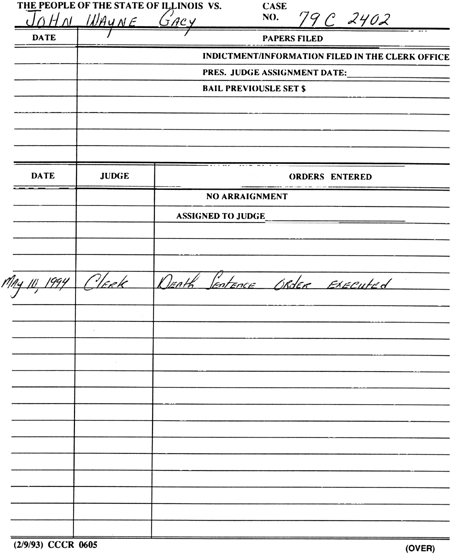 THE PEOPLE OF THE STATE OF ILLINOIS VS. CASE
JOHN WAYNE GACY NO. 79 C 2402
DATE PAPERS FILED
INDICTMENT/INFORMATION FILED IN THE CLERK OFFICE
PRES. JUDGE ASSIGNMENT DATE:
BAIL PREVIOUSLE SET $
DATE JUDGE ORDERS ENTERED
NO ARRAIGNMENT
ASSIGNED TO JUDGE
May 10, 1994 Clerk Death Sentence Order Executed
(2/9/93) CCCR 0605 (OVER)